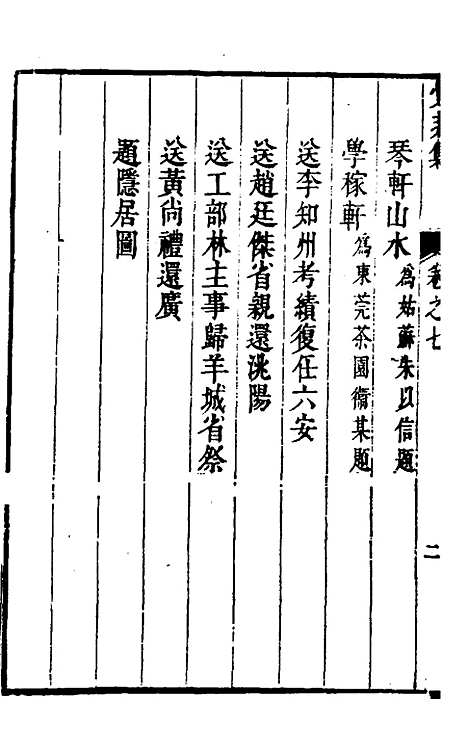 卷之七
二
琴軒山水 爲姑蘇朱以信題
學稼軒 爲東莞茶園衞某題
送李知州考績復任六安
送趙廷傑省親還洮陽
送工部林主事歸羊城省祭
送黃尚禮還廣
題隱居圖